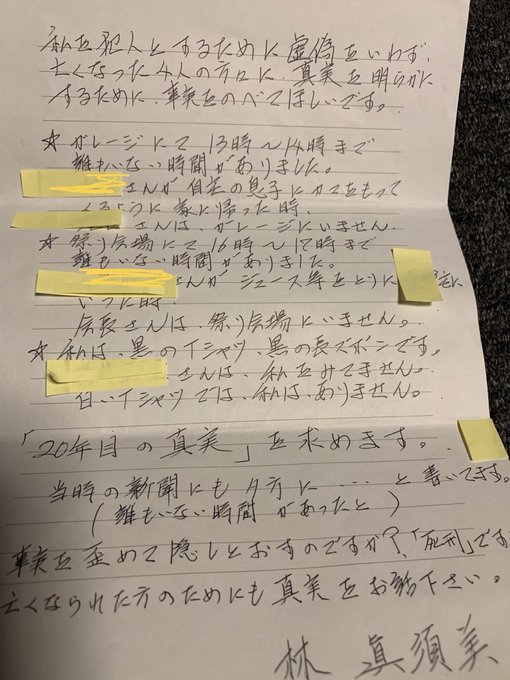 私を犯人とするために虚偽をいわず、
亡くなった4人の方々に、真実を明らかに
するために、事実をのべてほしいです。
☆ ガレージにて 13時〜14時まで
誰もいない時間がありました。
さんが自宅の息子にカマをもって
くるように家に帰った時、
さんは、ガレージにいません。
☆ 祭り会場にて 16時〜17時まで
誰もいない時間がありました。
さんがジュース等をとりに
いった時、
会長さんは、祭り会場にいません。
☆ 私は、黒のTシャツ、黒の長ズボンです。
さんは、私をみてません。
白いTシャツでは、私は、ありません。
「20年目の真実」を求めます。
当時の新聞にも夕方に … … と書いてます。
(誰もいない時間があったと)
事実を歪めて隠しとおすのですか?「死刑」です
亡くなられた方のためにも真実をお話下さい。
林 眞須美